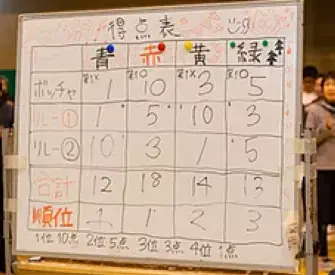 得点表
青 赤 黄 緑
ボッチャ 1 10 3 5
リレー① 1 5 10 3
リレー② 10 3 1 5
合計 12 18 14 13
順位 1 2 3
1位10点 2位5点 3位3点 4位1点